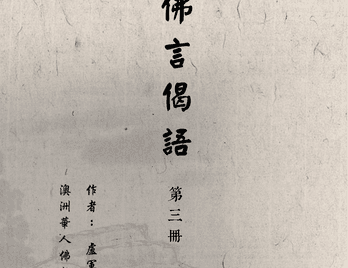 佛言偈語
第三冊
作者：盧
澳洲華人佛